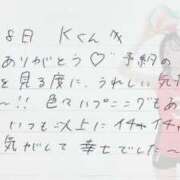 8日 Kくん
ありがとう♡ 予約の
を見る度に、うれしい気
〜!! 色々ハプニングもあ
いつも以上にイチャイチャ
気がして幸せでした〜